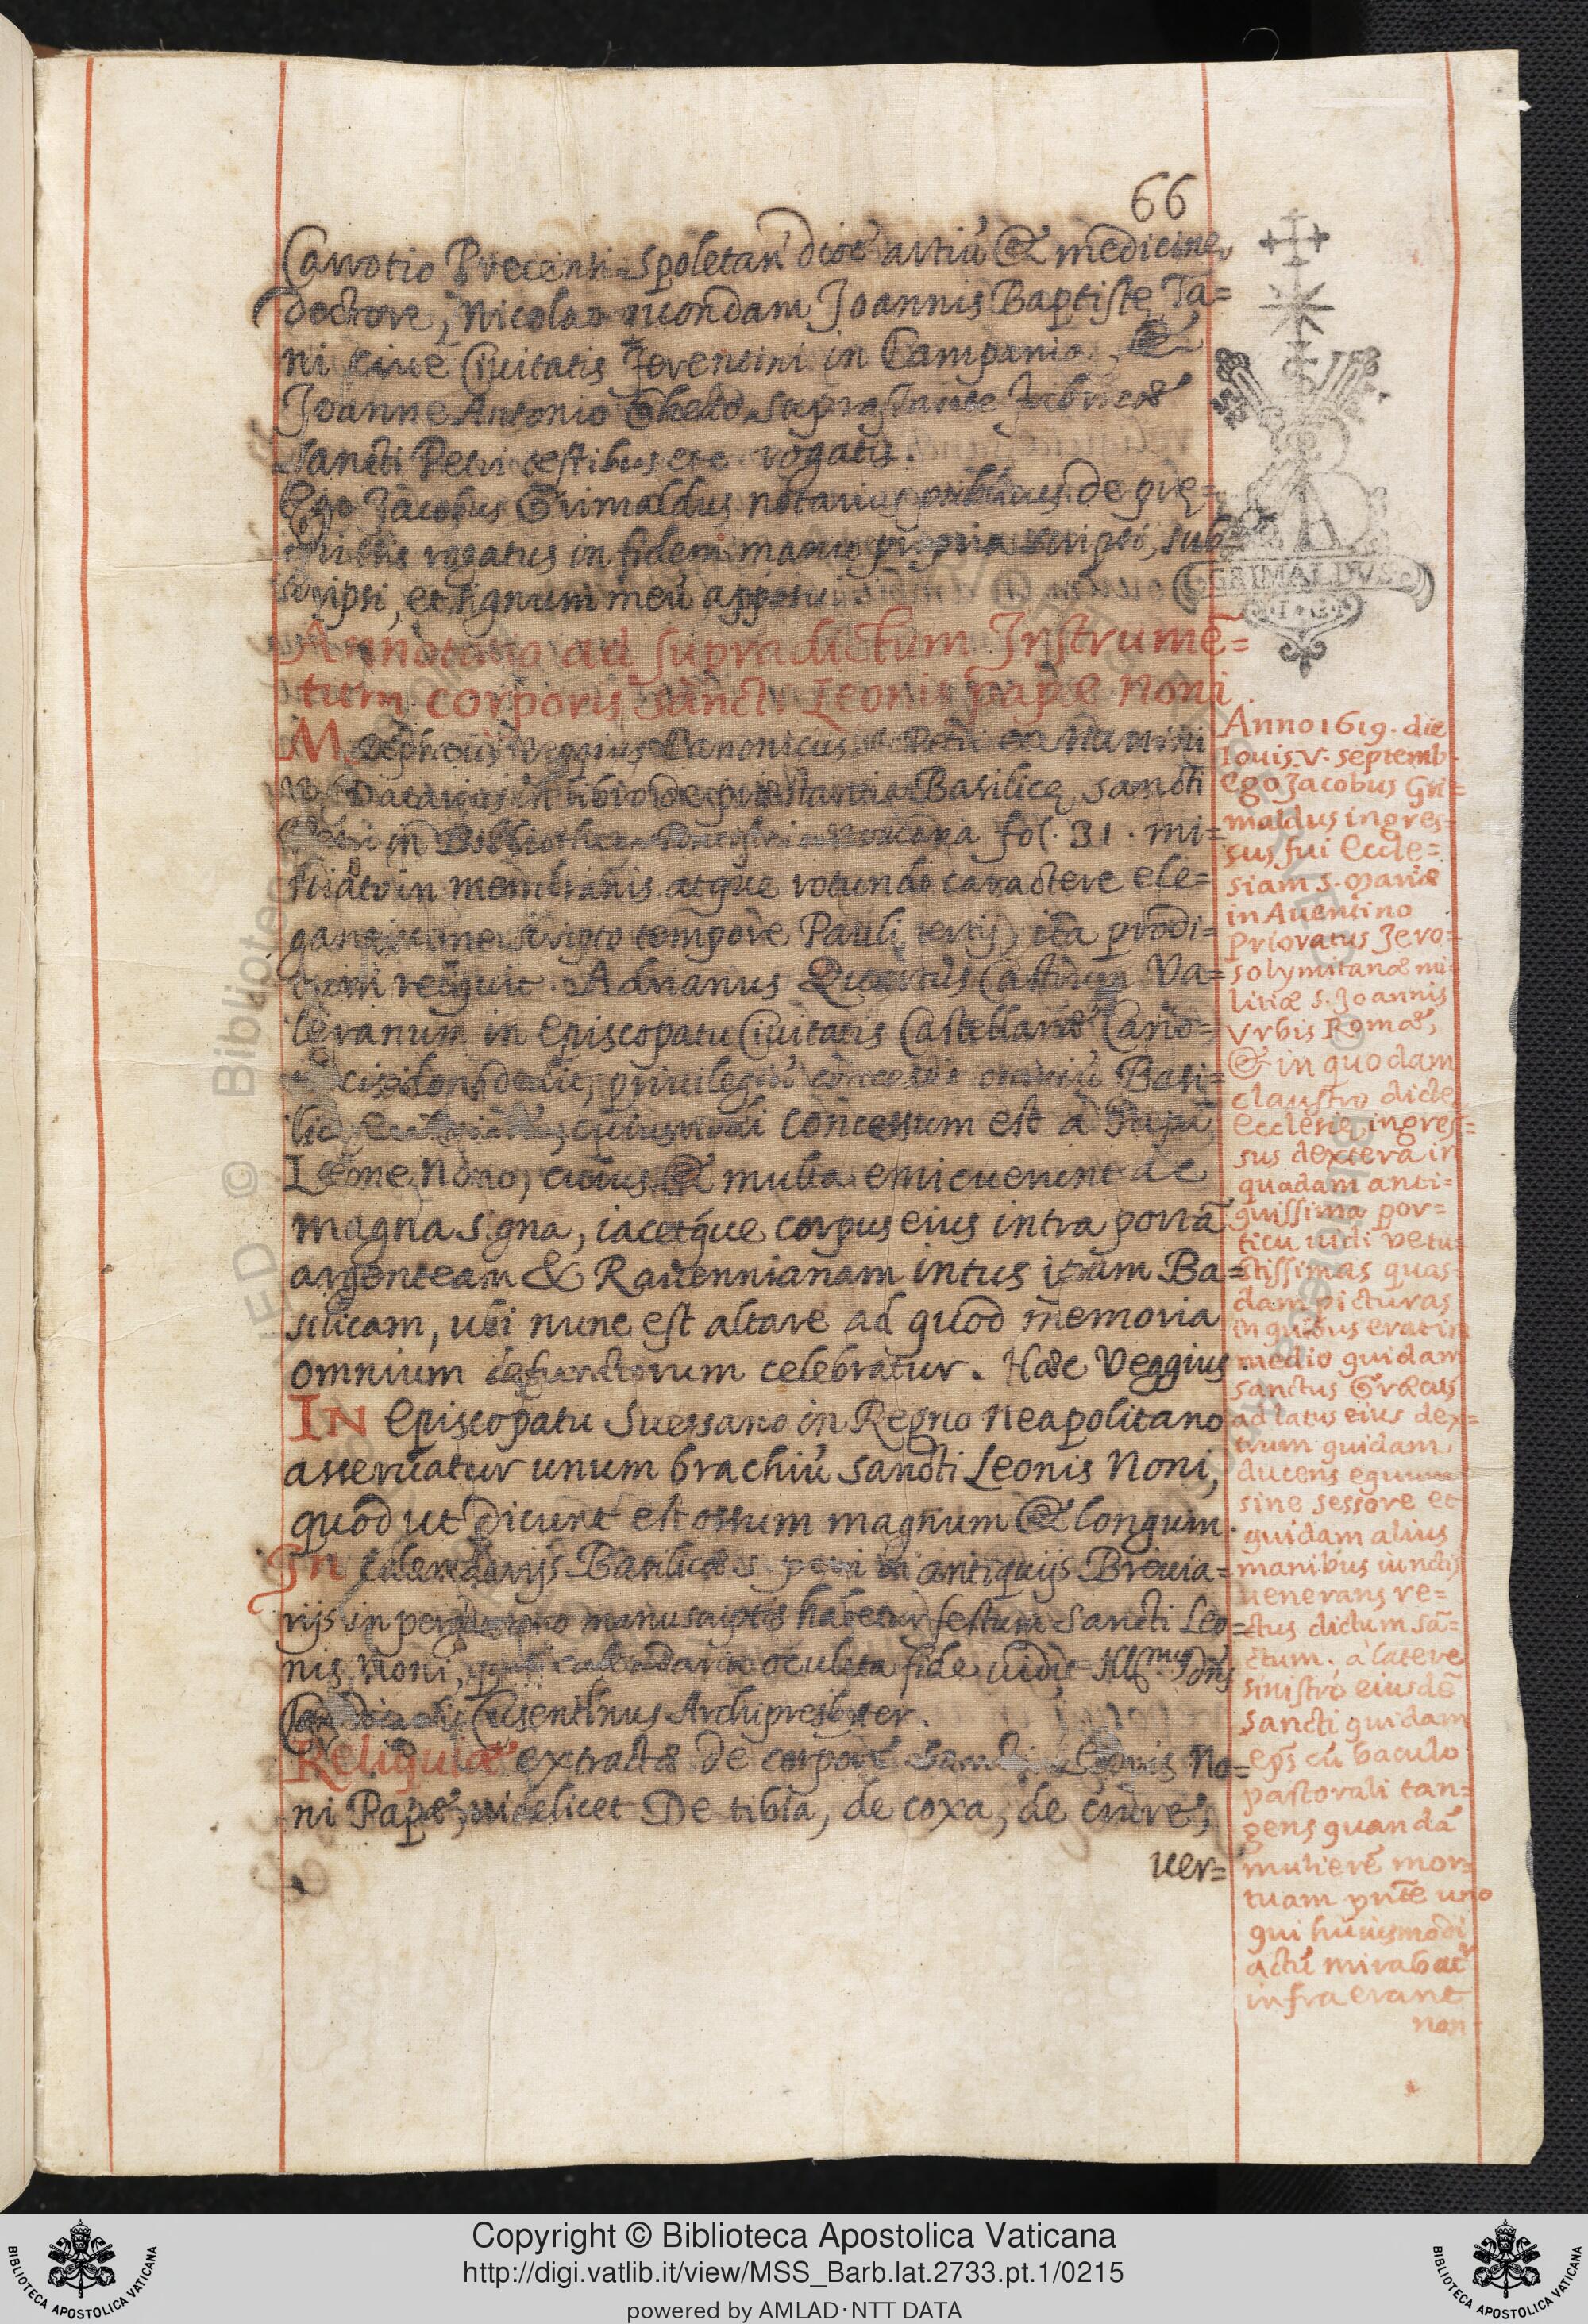 66
Carrotio Precenti Spoletań dioć artiū & medicinę
doctore, Nicolao quondam Joannis Baptistę Ta=
ni cive Civitatis Ferentini in Campania, &
Joanne Antonio Ghetio suprastante fabricæ
sancti Petri testibus etc rogatis.
Ego Jacobus Grimaldus notarius publicus de prę=
missis rogatus in fidem manu propria scripsi, sub
scripsi, et signum meū apposui.
GRIMALDVS
.I.G.
Annotatio ad supradictum Instrumē=
tum corporis sancti Leonis papæ Noni
Mapheus Veggius Canonicus S. Petri et Martini
V. Datarius in libro de prestantia Basilicę sancti
Petri in Bibliotheca Vaticana fol. 31. mi=
niato in membranis atque rotundo caractere ele=
gantissime scripto tempore Pauli tertij ita prodi=
tum reliquit. Adrianus Quartus Castrum Va=
leranum in Episcopatu Civitatis Castellanæ Cano=
dedit, privilegiū omniū Basi=
cuiusmodi concessum est à Papa
Leone Nono, cuius & multa emicuerunt ac
magna signa, iacetque corpus eius intra portā
argenteam & Ravennianam intus ipsam Ba=
silicam, ubi nunc est altare ad quod memoria
omnium defunctorum celebratur. Hæc Veggius
IN Episcopatu Suessano in Regno Neapolitano
asservatur unum brachiū sancti Leonis Noni,
quod ut dicunt est ossum magnum & longum.
In calendarijs Basilicæ s. petri in antiquijs Brevia=
rijs in pergameno manuscriptis habetur festum sancti Leo=
nis Noni, quæ calendaria oculata fide vidit Illmus Dn̄s
Cardinalis Cusentinus Archipresbyter.
Reliquiæ extractæ de corpore Sancti Leonis No=
ni Papæ, videlicet De tibia, de coxa, de crure,
ver=
Anno 1619. die
Iovis. V. septemb.
ego Jacobus Gri=
maldus ingres=
sus fui Eccle=
siam S. Mariæ
in Aventino
Prioratus Jero=
solymitanæ mi=
litiæ S. Joannis
Vrbis Romæ,
& in quodam
claustro dictę
Ecclesię ingres=
sus dextera in
quadam anti=
quissima por=
ticu vidi vetu=
stissimas quas=
dam picturas
in quibus erat in
medio quidam
sanctus Græcus
ad latus eius dex=
trum quidam
ducens equum
sine sessore et
quidam alius
manibus iunctis
venerans re=
ctus dictum sā=
ctum. à latere
sinistro eiusdē
sancti quidam
ep̄s cū baculo
pastorali tan=
gens quandā
mulierē mor=
tuam pn̄te uno
qui huiusmodi
actū mirabatr
infra erant
non=
Copyright © Biblioteca Apostolica Vaticana
http://digi.vatlib.it/view/MSS_Barb.lat.2733.pt.1/0215
powered by AMLAD·NTT DATA
BIBLIOTECA APOSTOLICA VATICANA
BIBLIOTECA APOSTOLICA VATICANA